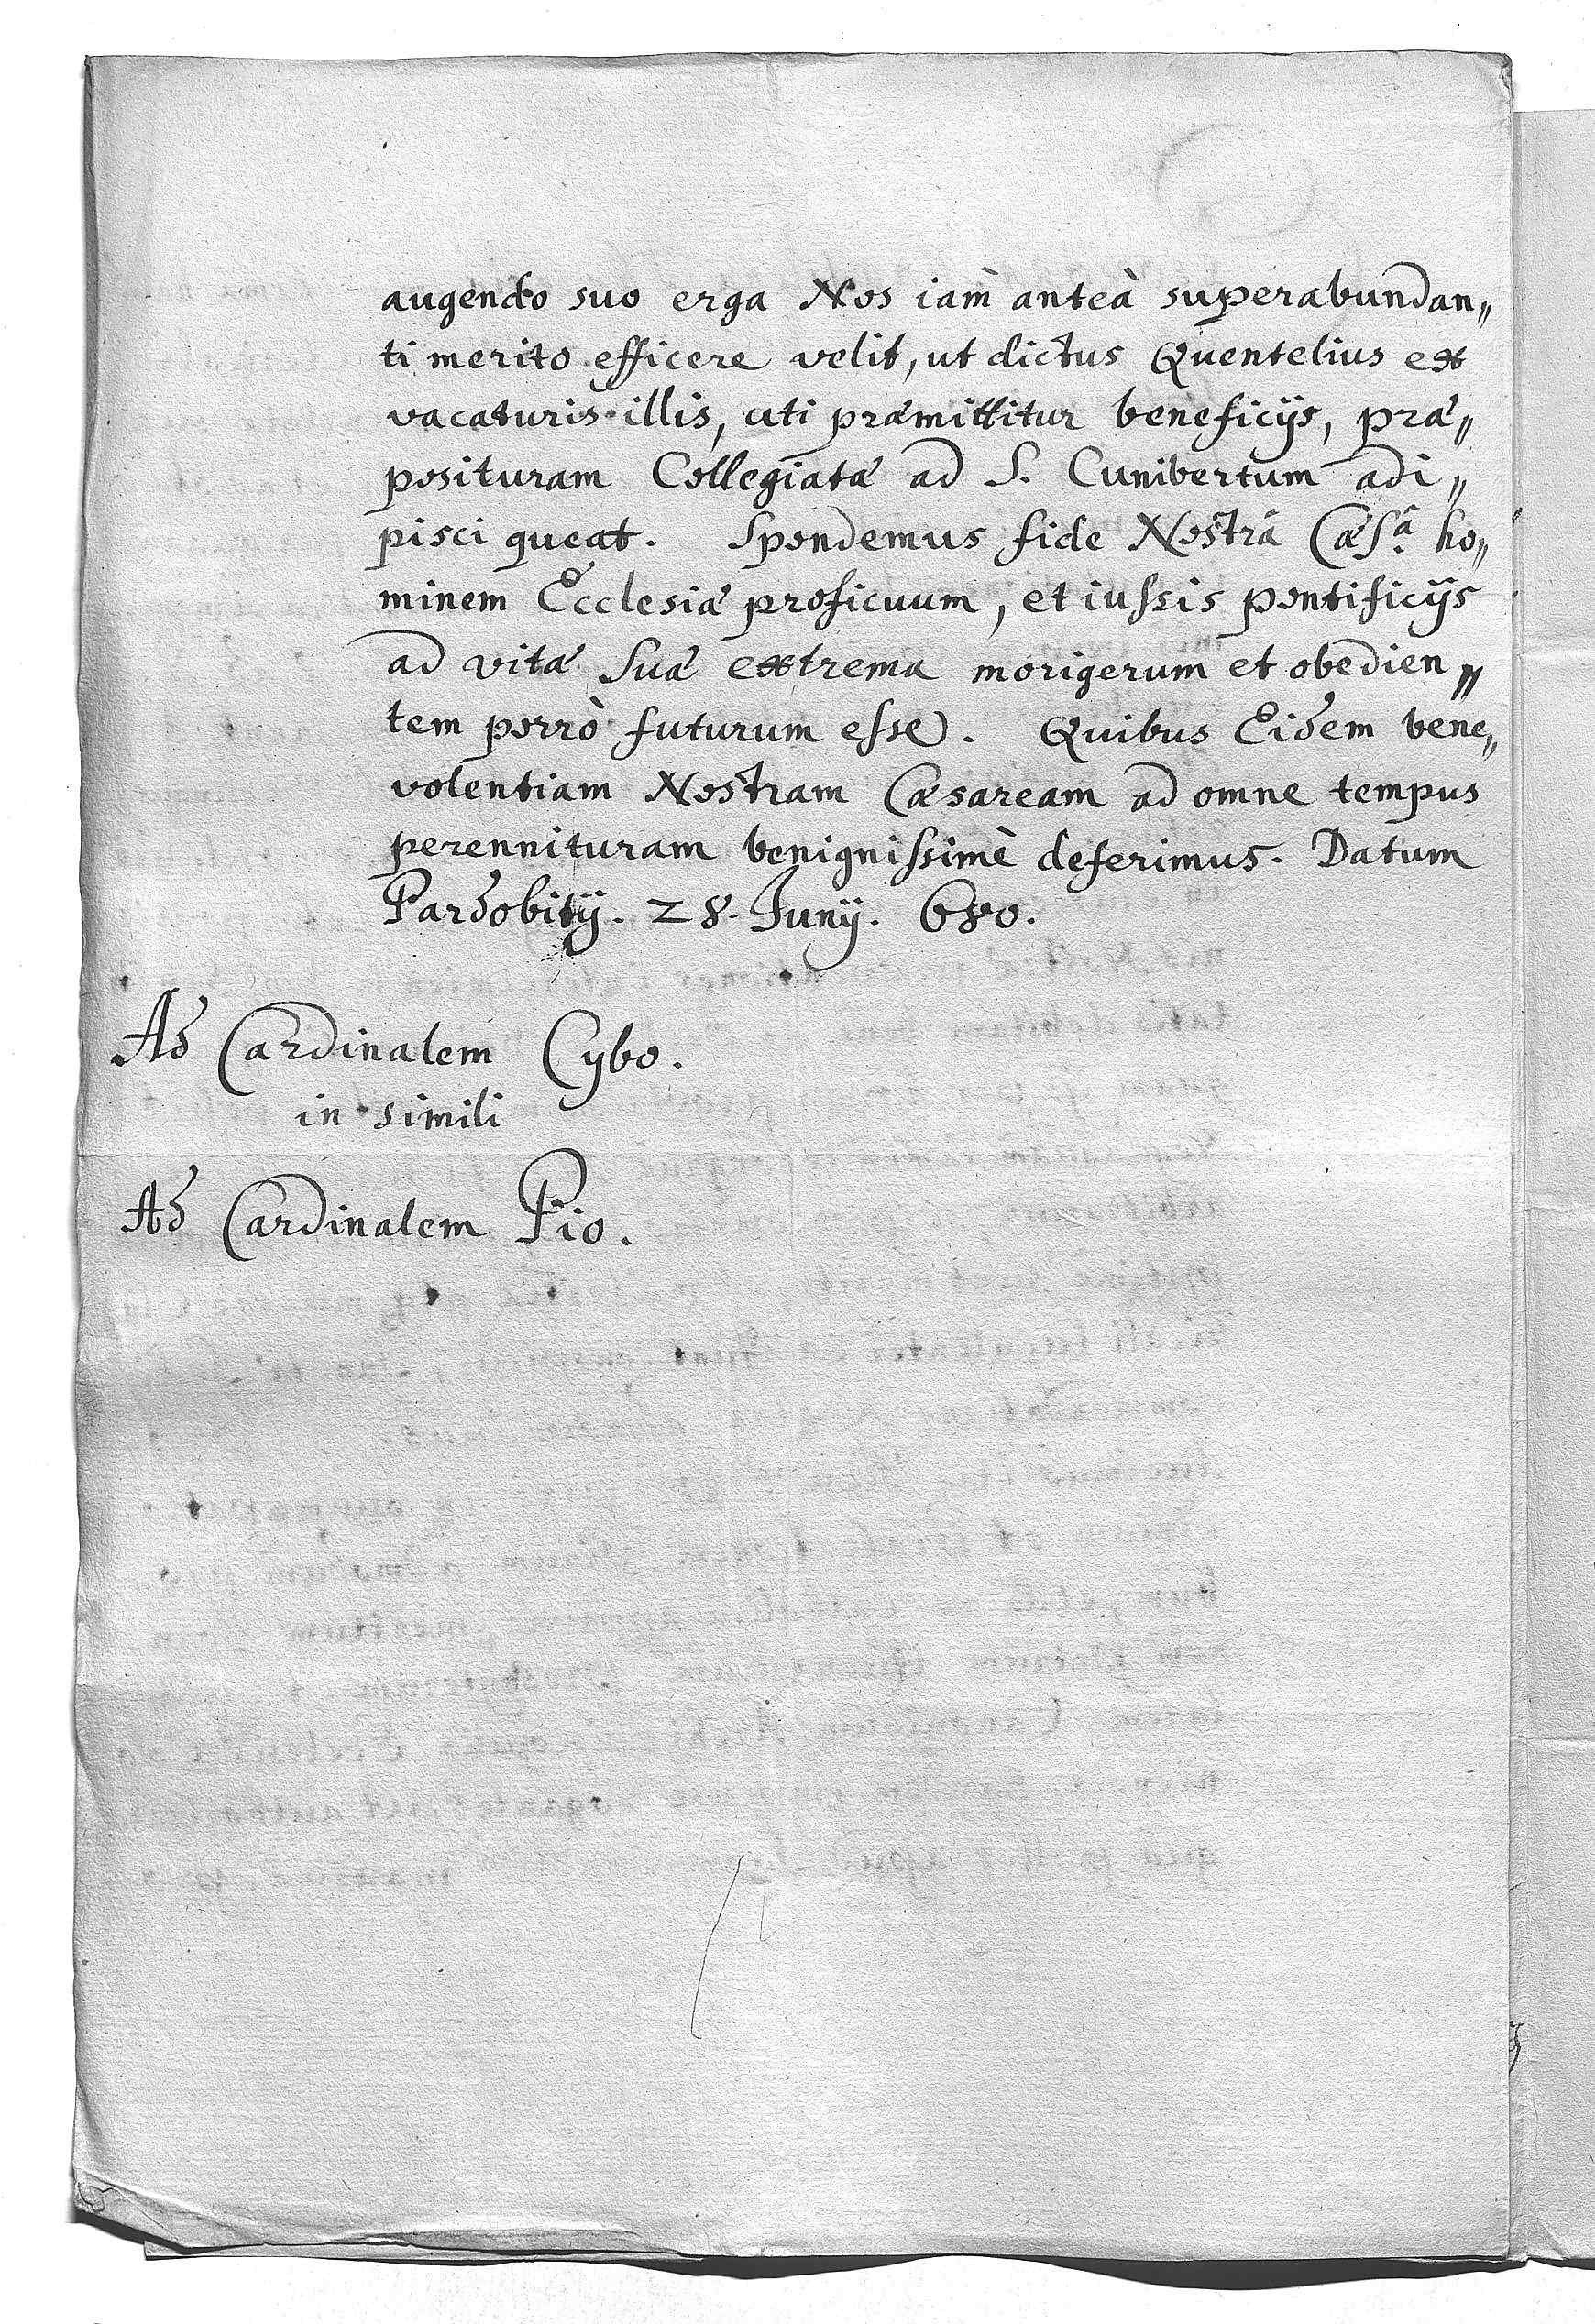 augendo suo erga Nos iam̀ anteà superabundan„
ti merito efficere velit, ut dictus Quentelius ex
vacaturis illis, uti præmittitur beneficijs, præ„
posituram Collegiatæ ad S. Cunibertum adi„
pisci queat. Spondemus fide Nostrâ Cæsâ. ho„
minem Ecclesiæ proficuum, et iussis pontificijs
ad vitæ suæ extrema morigerum et obedien„
tem porrò futurum esse. Quibus Eidem bene„
volentiam Nostram Cæsaream ad omne tempus
perennituram benignissimè deferimus. Datum
Pardobitij. 28. Junij. 680.
Ad Cardinalem Cybo.
in simili
Ad Cardinalem Pio.